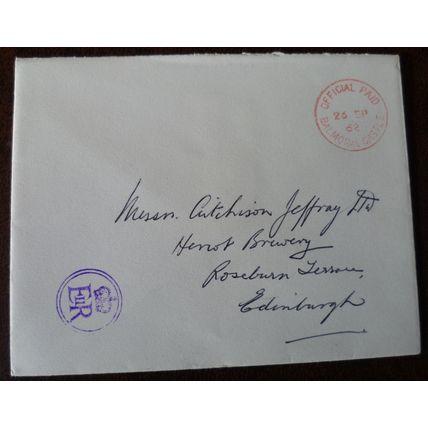 OFFICIAL PAID
26 SP
62
BALMORAL CASTLE
Messrs. Aitchison Jeffray Ltd
Heriot Brewery
Roseburn Terrace,
Edinburgh
EIIR